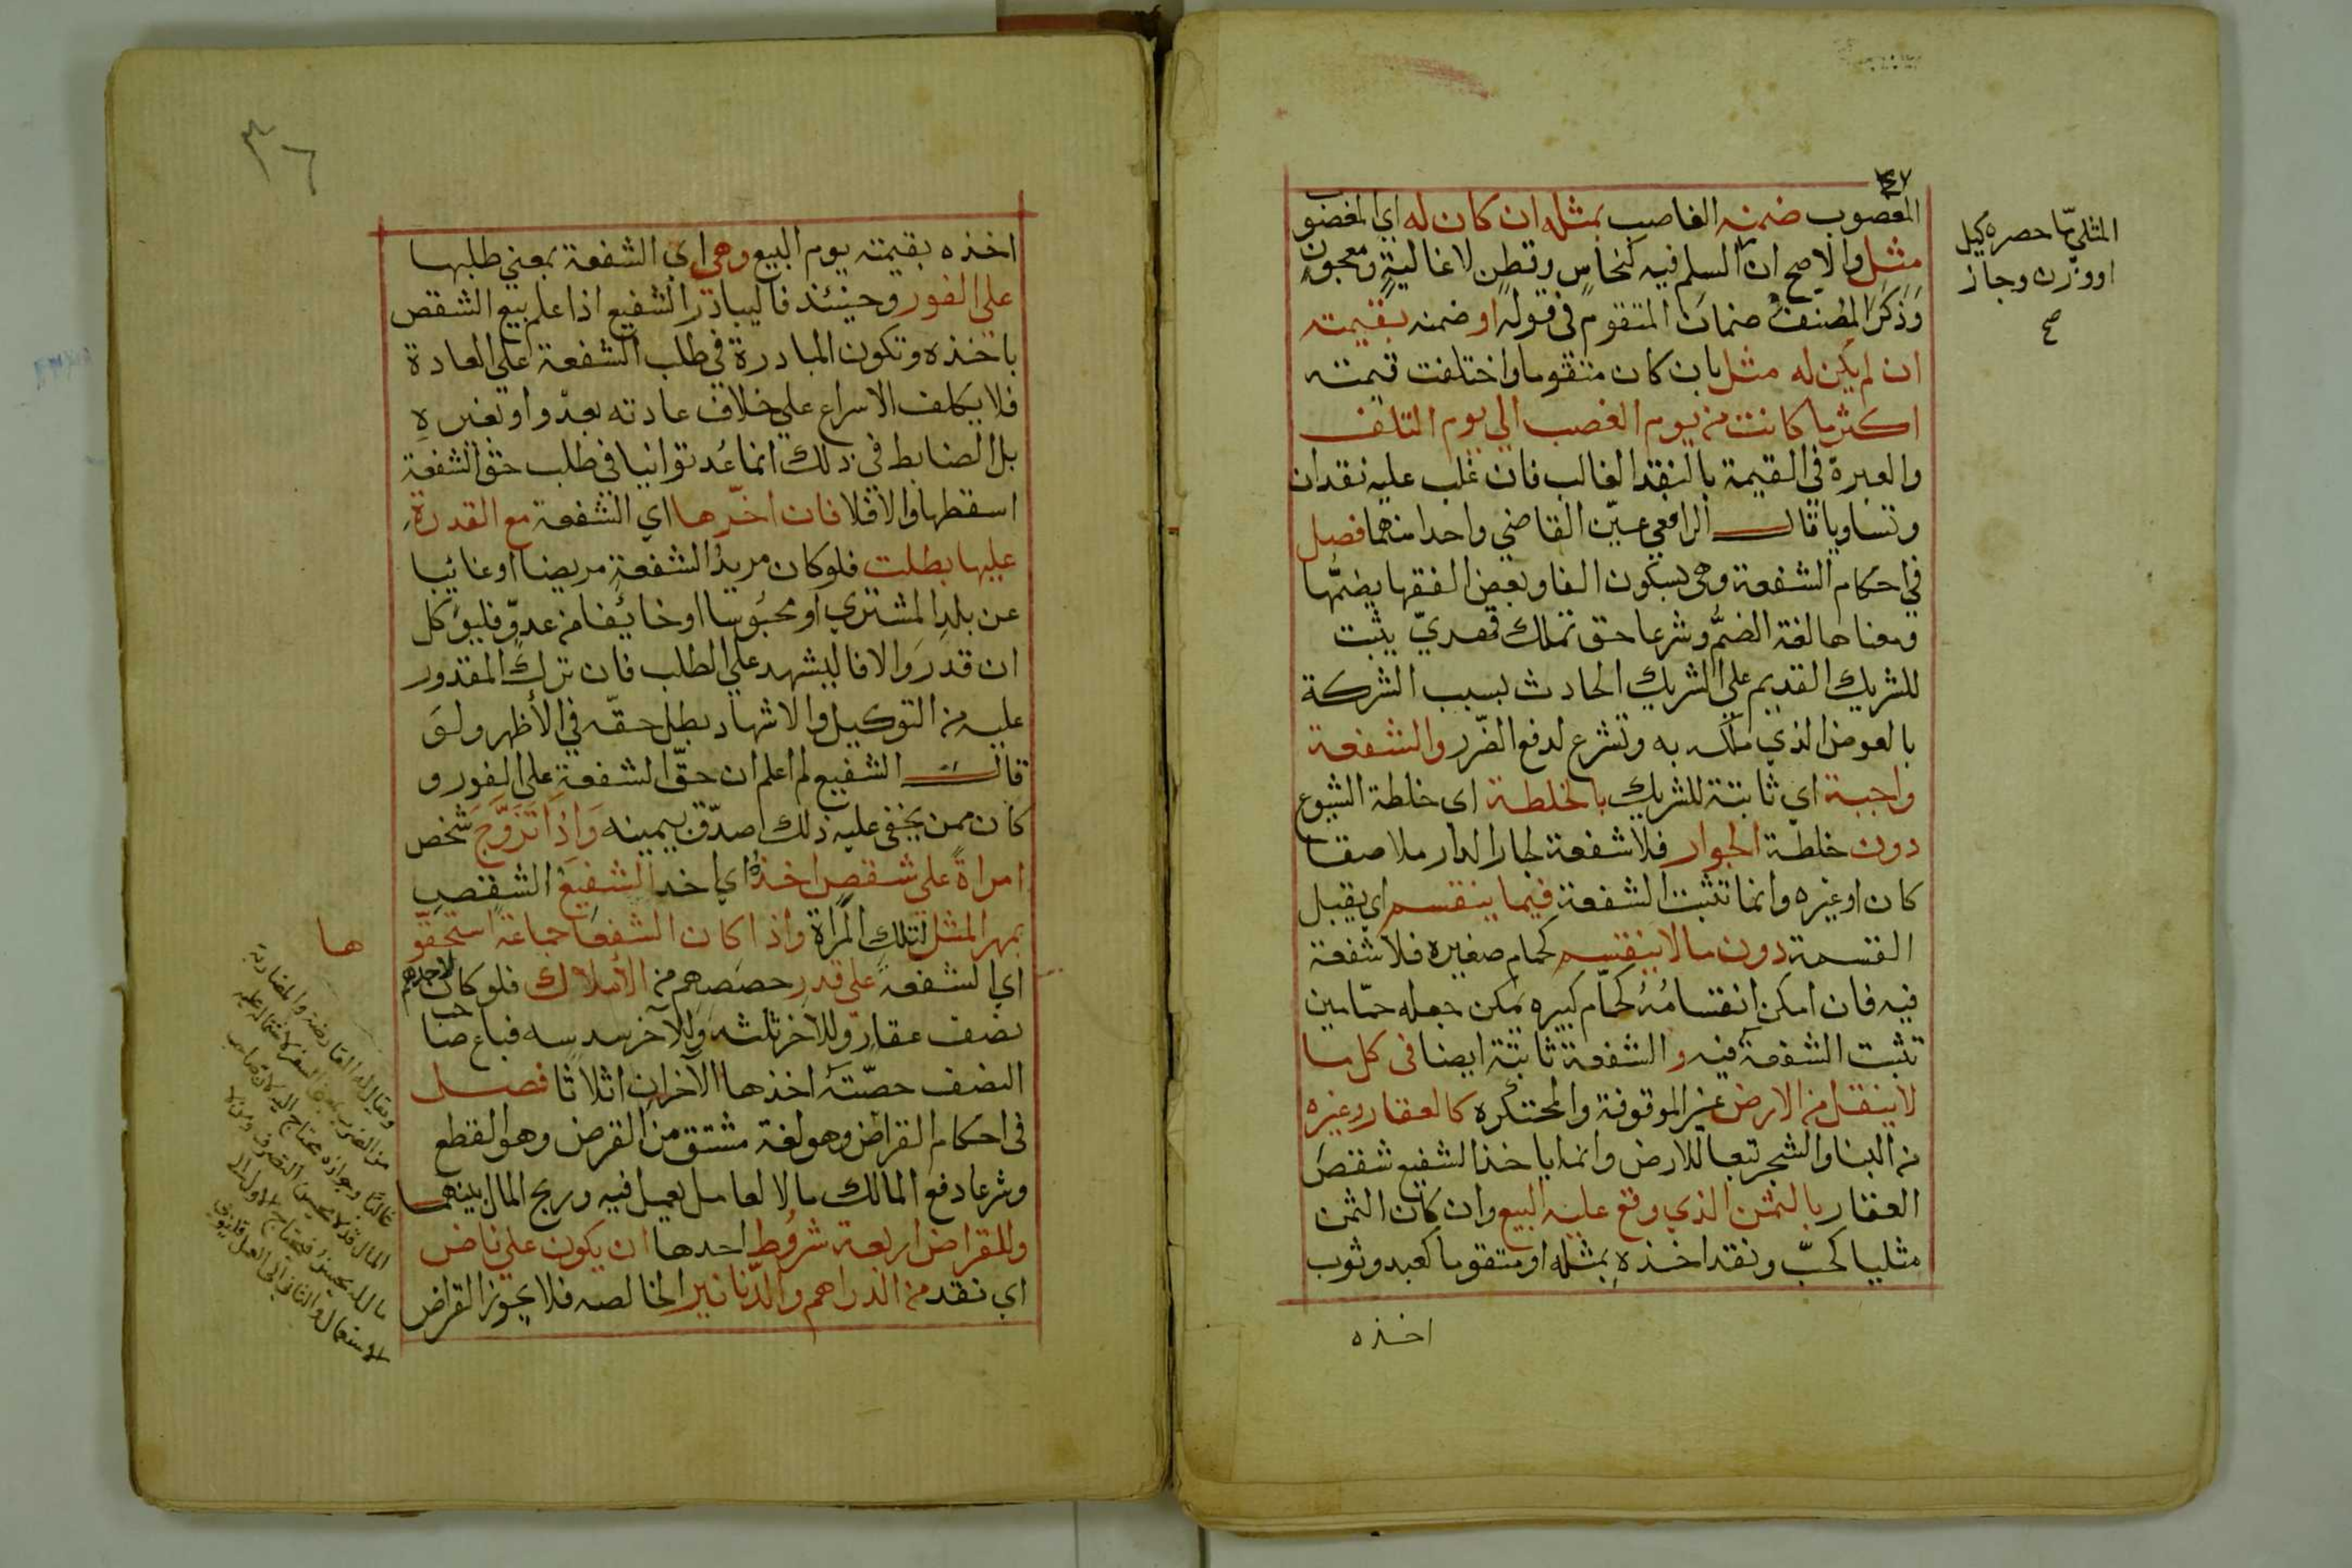 المغصوب ضمنه الغاصب بمثله ان كان له اي المغضوب
مثل والاصح ان السلم فيه كنحاس وقطن لا غالية ومعجون
وذكر المصنف ضمان المتقوم في قوله او ضمنه بقيمته
ان لم يكن له مثل بان كان متقوما واختلفت قيمته
اكثر ما كانت من يوم الغصب الي يوم التلف
والعبرة في القيمة بالنقد الغالب فان غلب عليه نقدان
وتساويا قال الرافعي عين القاضي واحدا منهما فصل
في احكام الشفعة وهي بسكون الفا وبعض الفقها يضمها
ومعناها لغة الضم وشرعا حق تملك قهدي يثبت
للشريك القديم علي الشريك الحادث بسبب الشركة
بالعوض الذي ملك به وتشرع لدفع الضرر والشفعة
واجبة اي ثابتة للشريك بالخلطة اي خلطة الشيوع
دون خلطة الجوار فلا شفعة لجار الدار ملاصقا
كان او غيره وانما تثبت الشفعة فيما ينقسم اي يقبل
القسمة دون ما لا ينقسم كحمام صغيره فلا شفعة
فيه فان امكن انقسامه كحمام كبيره يمكن جعله حمامين
تثبت الشفعة فيه والشفعة ثابتة ايضا في كل ما
لا ينقل من الارض غير الموقوفة والمحتكره كالعقار وغيره
من البنا والشجر تبعا للارض وانما ياخذ الشفيع شقص
العقار بالثمن الذي وقع عليه البيع وان كان الثمن
مثليا كحب ونقد اخذه بمثله او متقوما كعبد وثوب
اخذه
المثلي ما حصره كيل
او وزن وجاز
صح
٣٦
اخذه بقيمته يوم البيع وهي اي الشفعة بمعني طلبها
علي الفور وحينئذ فاليبادر الشفيع اذا علم بيع الشقص
باخذه وتكون المبادرة في طلب الشفعة علي العادة
فلا يكلف الاسراع علي خلاف عادته بعدو او بغيره
بل الضابط في ذلك انما عد توانيا في طلب حق الشفعة
اسقطها والا فلا فان اخرها اي الشفعة مع القدرة
عليها بطلت فلو كان مريد الشفعة مريضا او غائبا
عن بلد المشتري او محبوسا او خائفا من عدو فليوكل
ان قدر والا فاليشهد علي الطلب فان ترك المقدور
عليه من التوكيل والاشهاد بطل حقه في الأظهر ولو
قال الشفيع لم اعلم ان حق الشفعة علي الفور و
كان ممن يخفي عليه ذلك صدق بيمينه واذا تزوج شخص
امراة علي شقص اخذه اي اخذ الشفيع الشقص
بمهر المثل لتلك المراة واذا كان الشفعا جماعة استحقو
ها
اي الشفعة علي قدر حصصهم من الأملاك فلو كان لاحدهم
نصف عقار وللاخر ثلثه وللآخر سدسه فباع صاحب
النصف حصته اخذها الآخران اثلاثا فصل
في احكام القراض وهو لغة مشتق من القرض وهو القطع
وشرعا دفع المالك مالا لعامل يعمل فيه وربح المال بينهما
وللقراض اربعة شروط احدها ان يكون علي ناض
اي نقد من الدراهم والدنانير الخالصه فلا يجوز القراض
ويقال له المقارضة والمضاربة